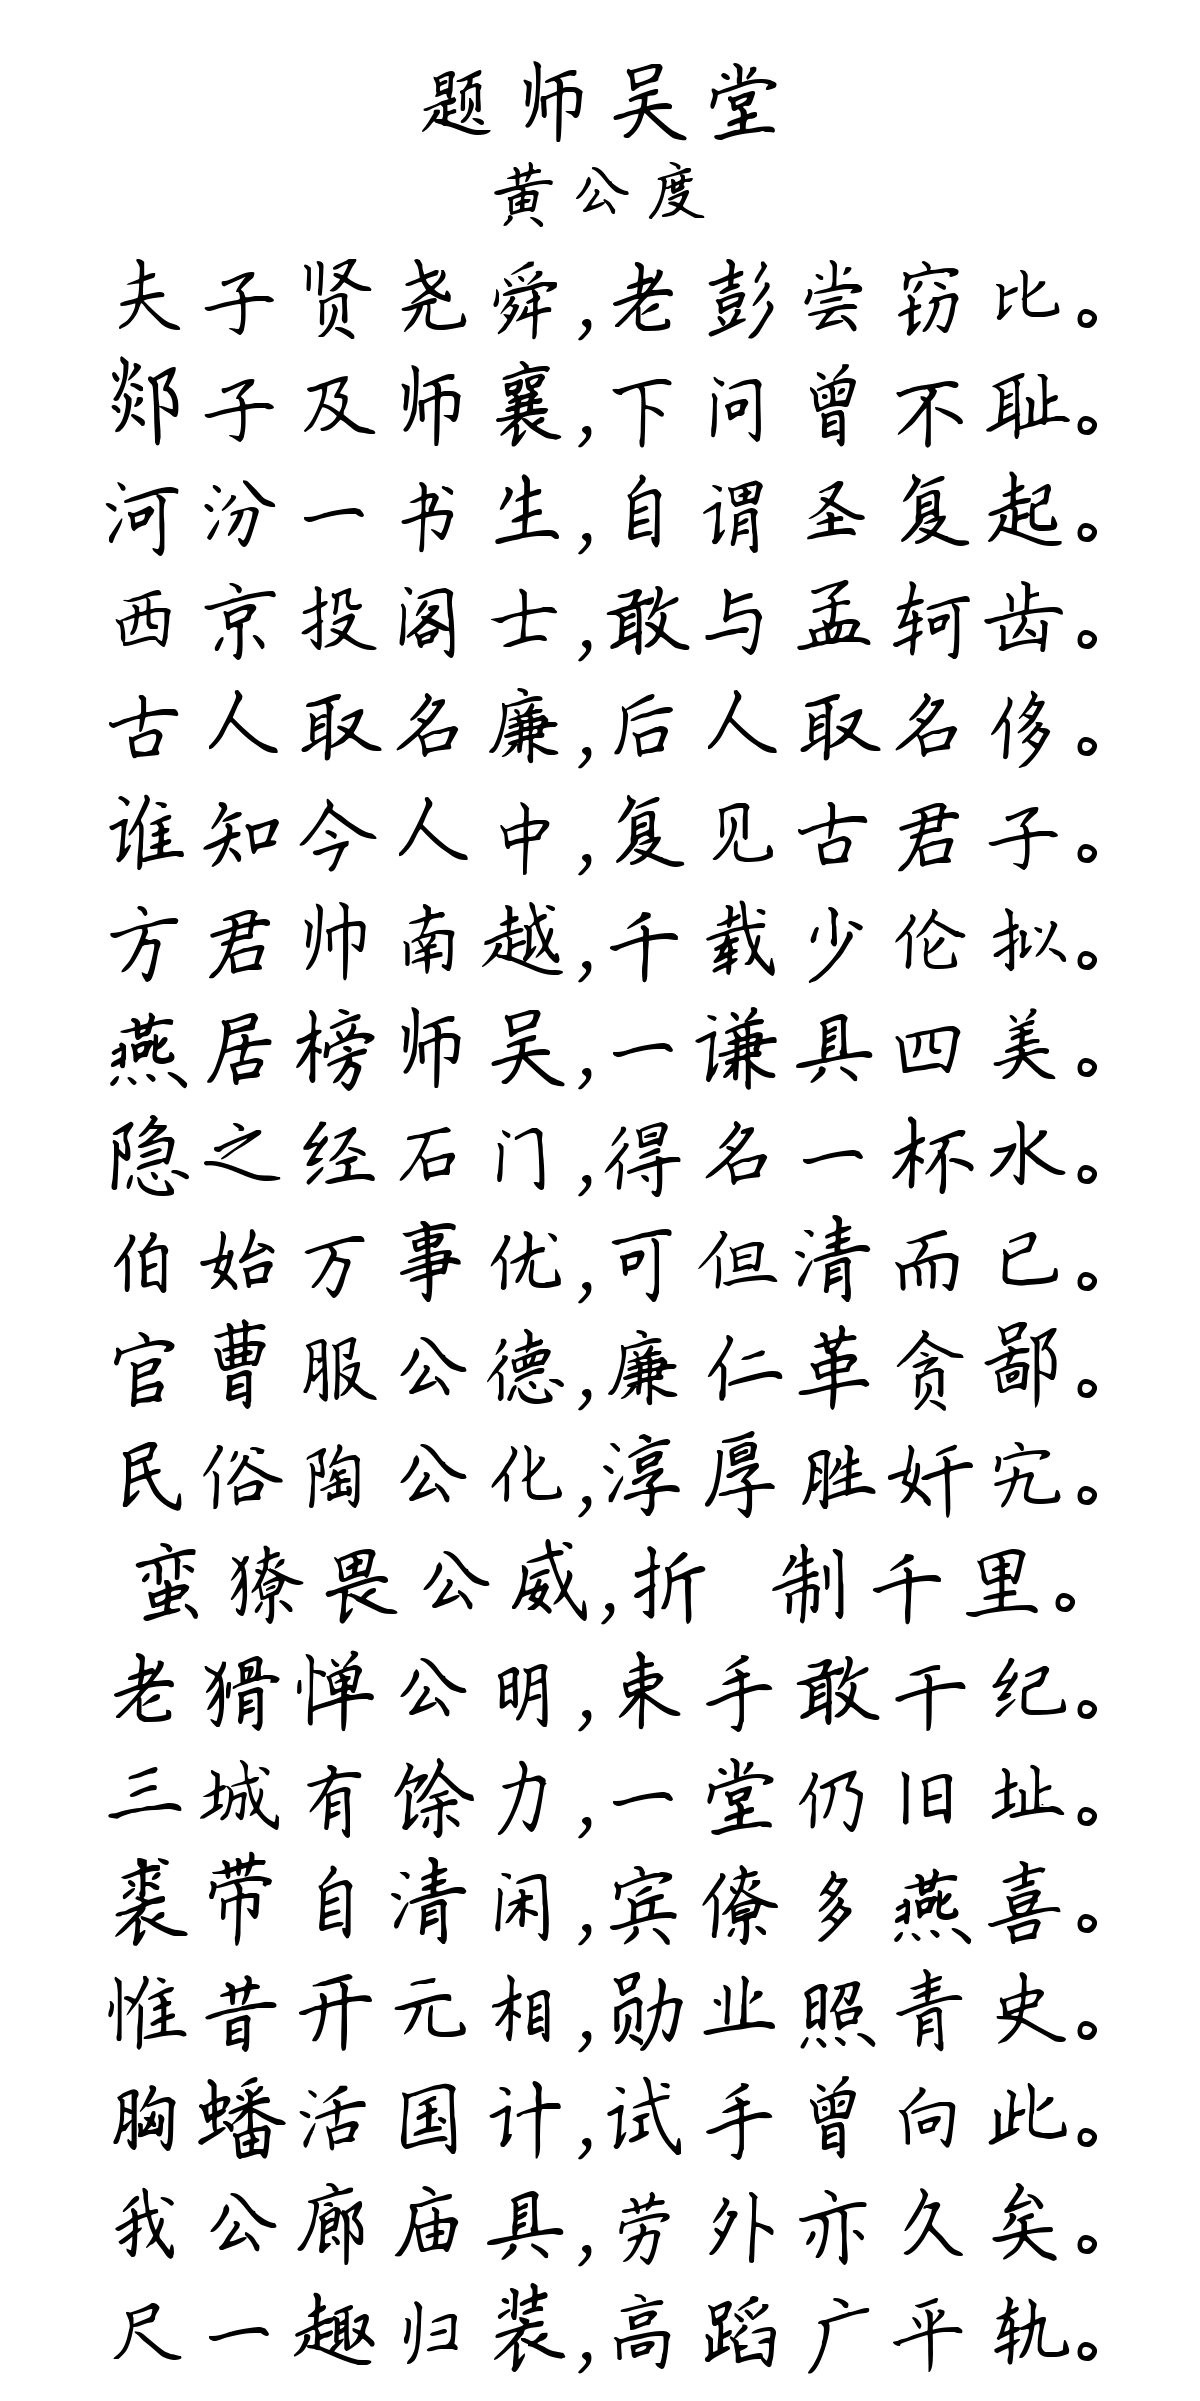 题师吴堂
黄公度
夫子贤尧舜,老彭尝窃比。
郯子及师襄,下问曾不耻。
河汾一书生,自谓圣复起。
西京投阁士,敢与孟轲齿。
古人取名廉,后人取名侈。
谁知今人中,复见古君子。
方君帅南越,千载少伦拟。
燕居榜师吴,一谦具四美。
隐之经石门,得名一杯水。
伯始万事优,可但清而已。
官曹服公德,廉仁革贪鄙。
民俗陶公化,淳厚胜奸宄。
蛮獠畏公威,折 制千里。
老猾惮公明,束手敢干纪。
三城有馀力,一堂仍旧址。
裘带自清闲,宾僚多燕喜。
惟昔开元相,勋业照青史。
胸蟠活国计,试手曾向此。
我公廊庙具,劳外亦久矣。
尺一趣归装,高蹈广平轨。